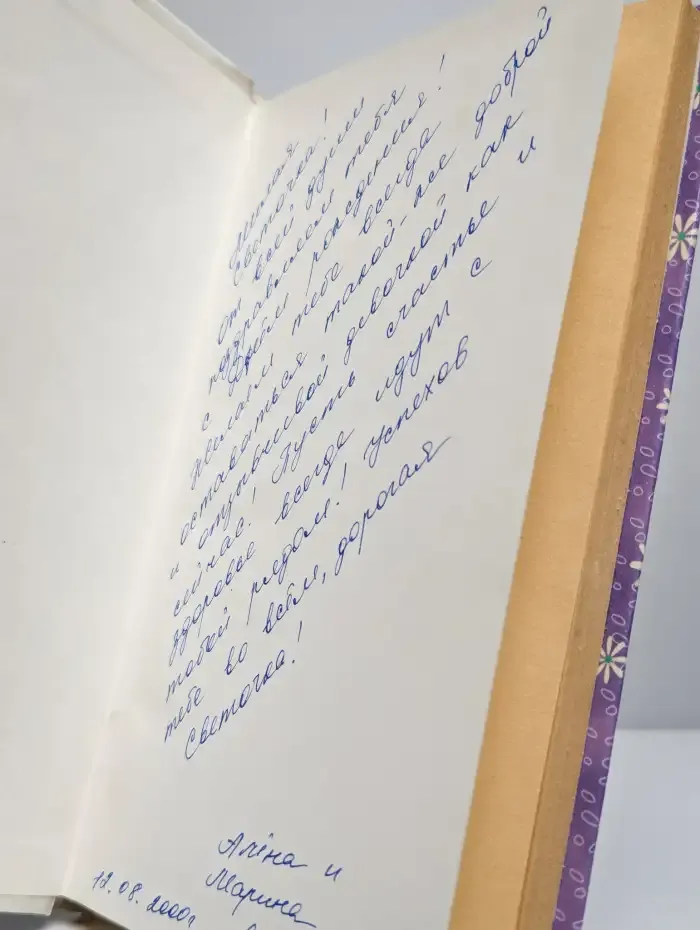 Милая
Светочка!
от всей души
поздравляем тебя
с Днём рождения!
Желаем тебе всегда
оставаться такой-же доброй
и отзывчивой девочкой как
сейчас! Пусть счастье и
здоровье всегда идут с
тобой рядом! Успехов
тебе во всём, дорогая
Светочка!
Алёна и
Марина
12.08.2000г